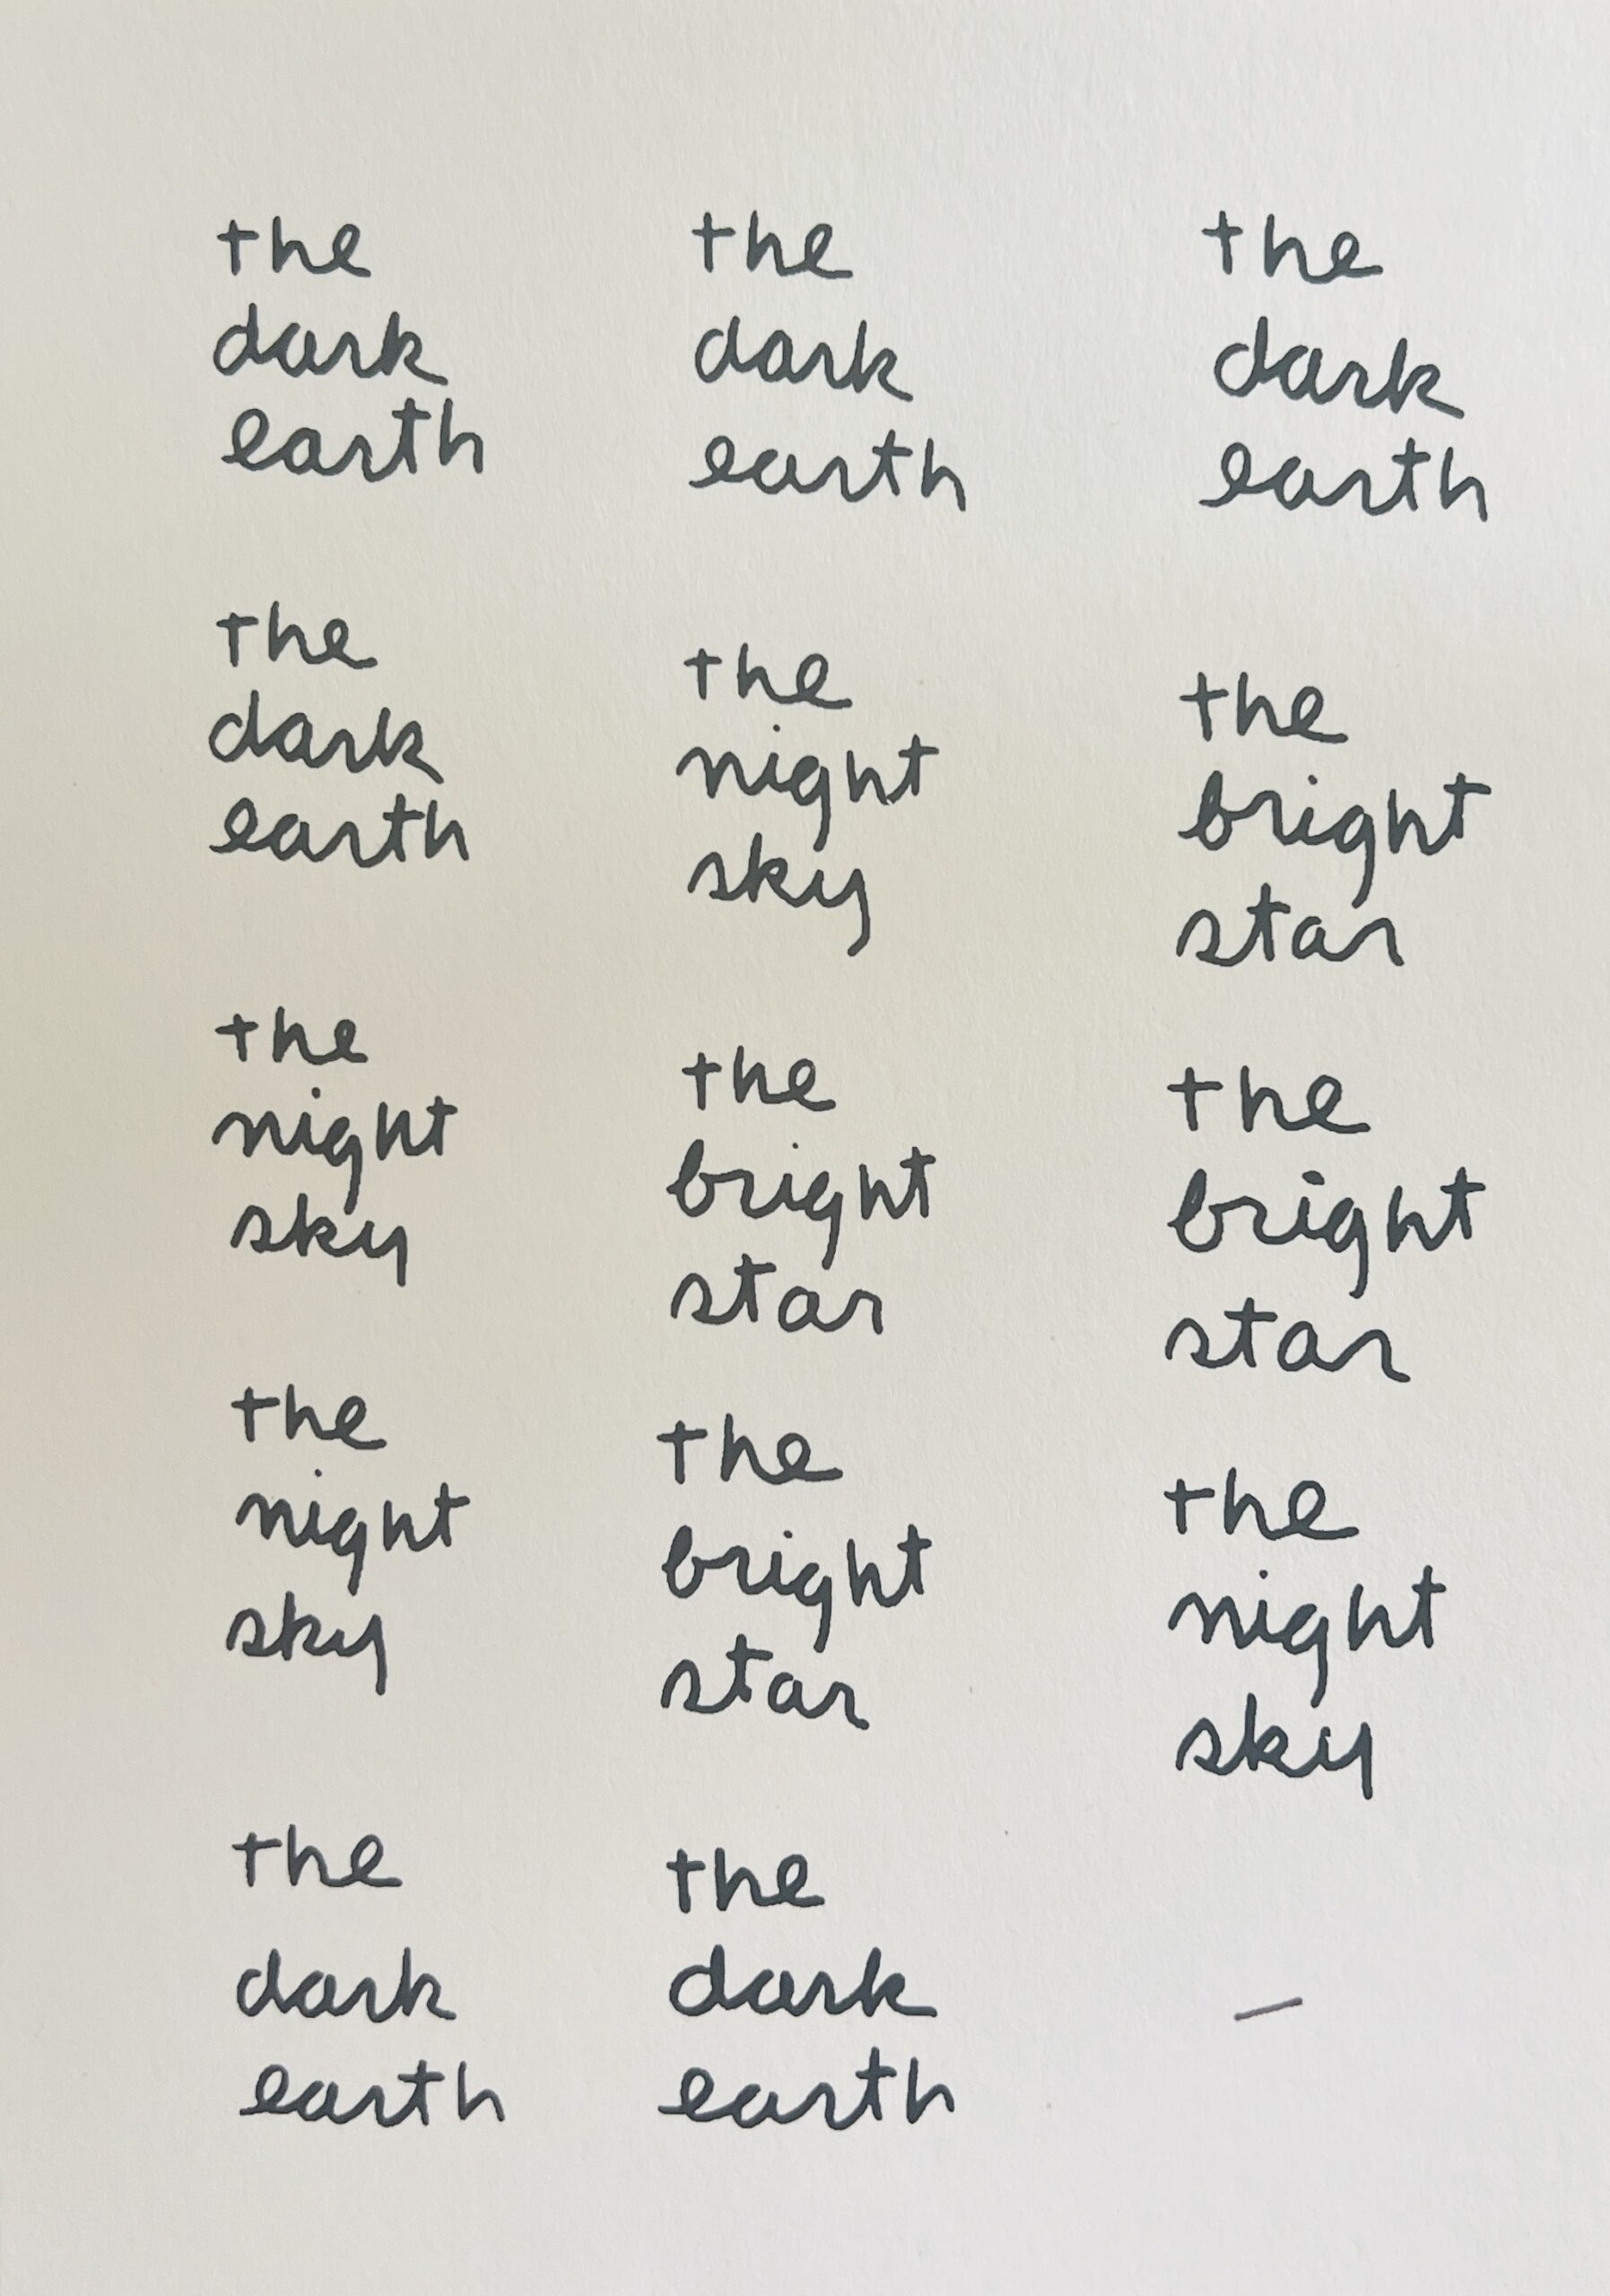 the
dark
earth
the
dark
earth
the
night
sky
the
night
sky
the
dark
earth
the
dark
earth
the
night
sky
the
bright
star
the
bright
star
the
dark
earth
the
dark
earth
the
bright
star
the
bright
star
the
night
sky
—